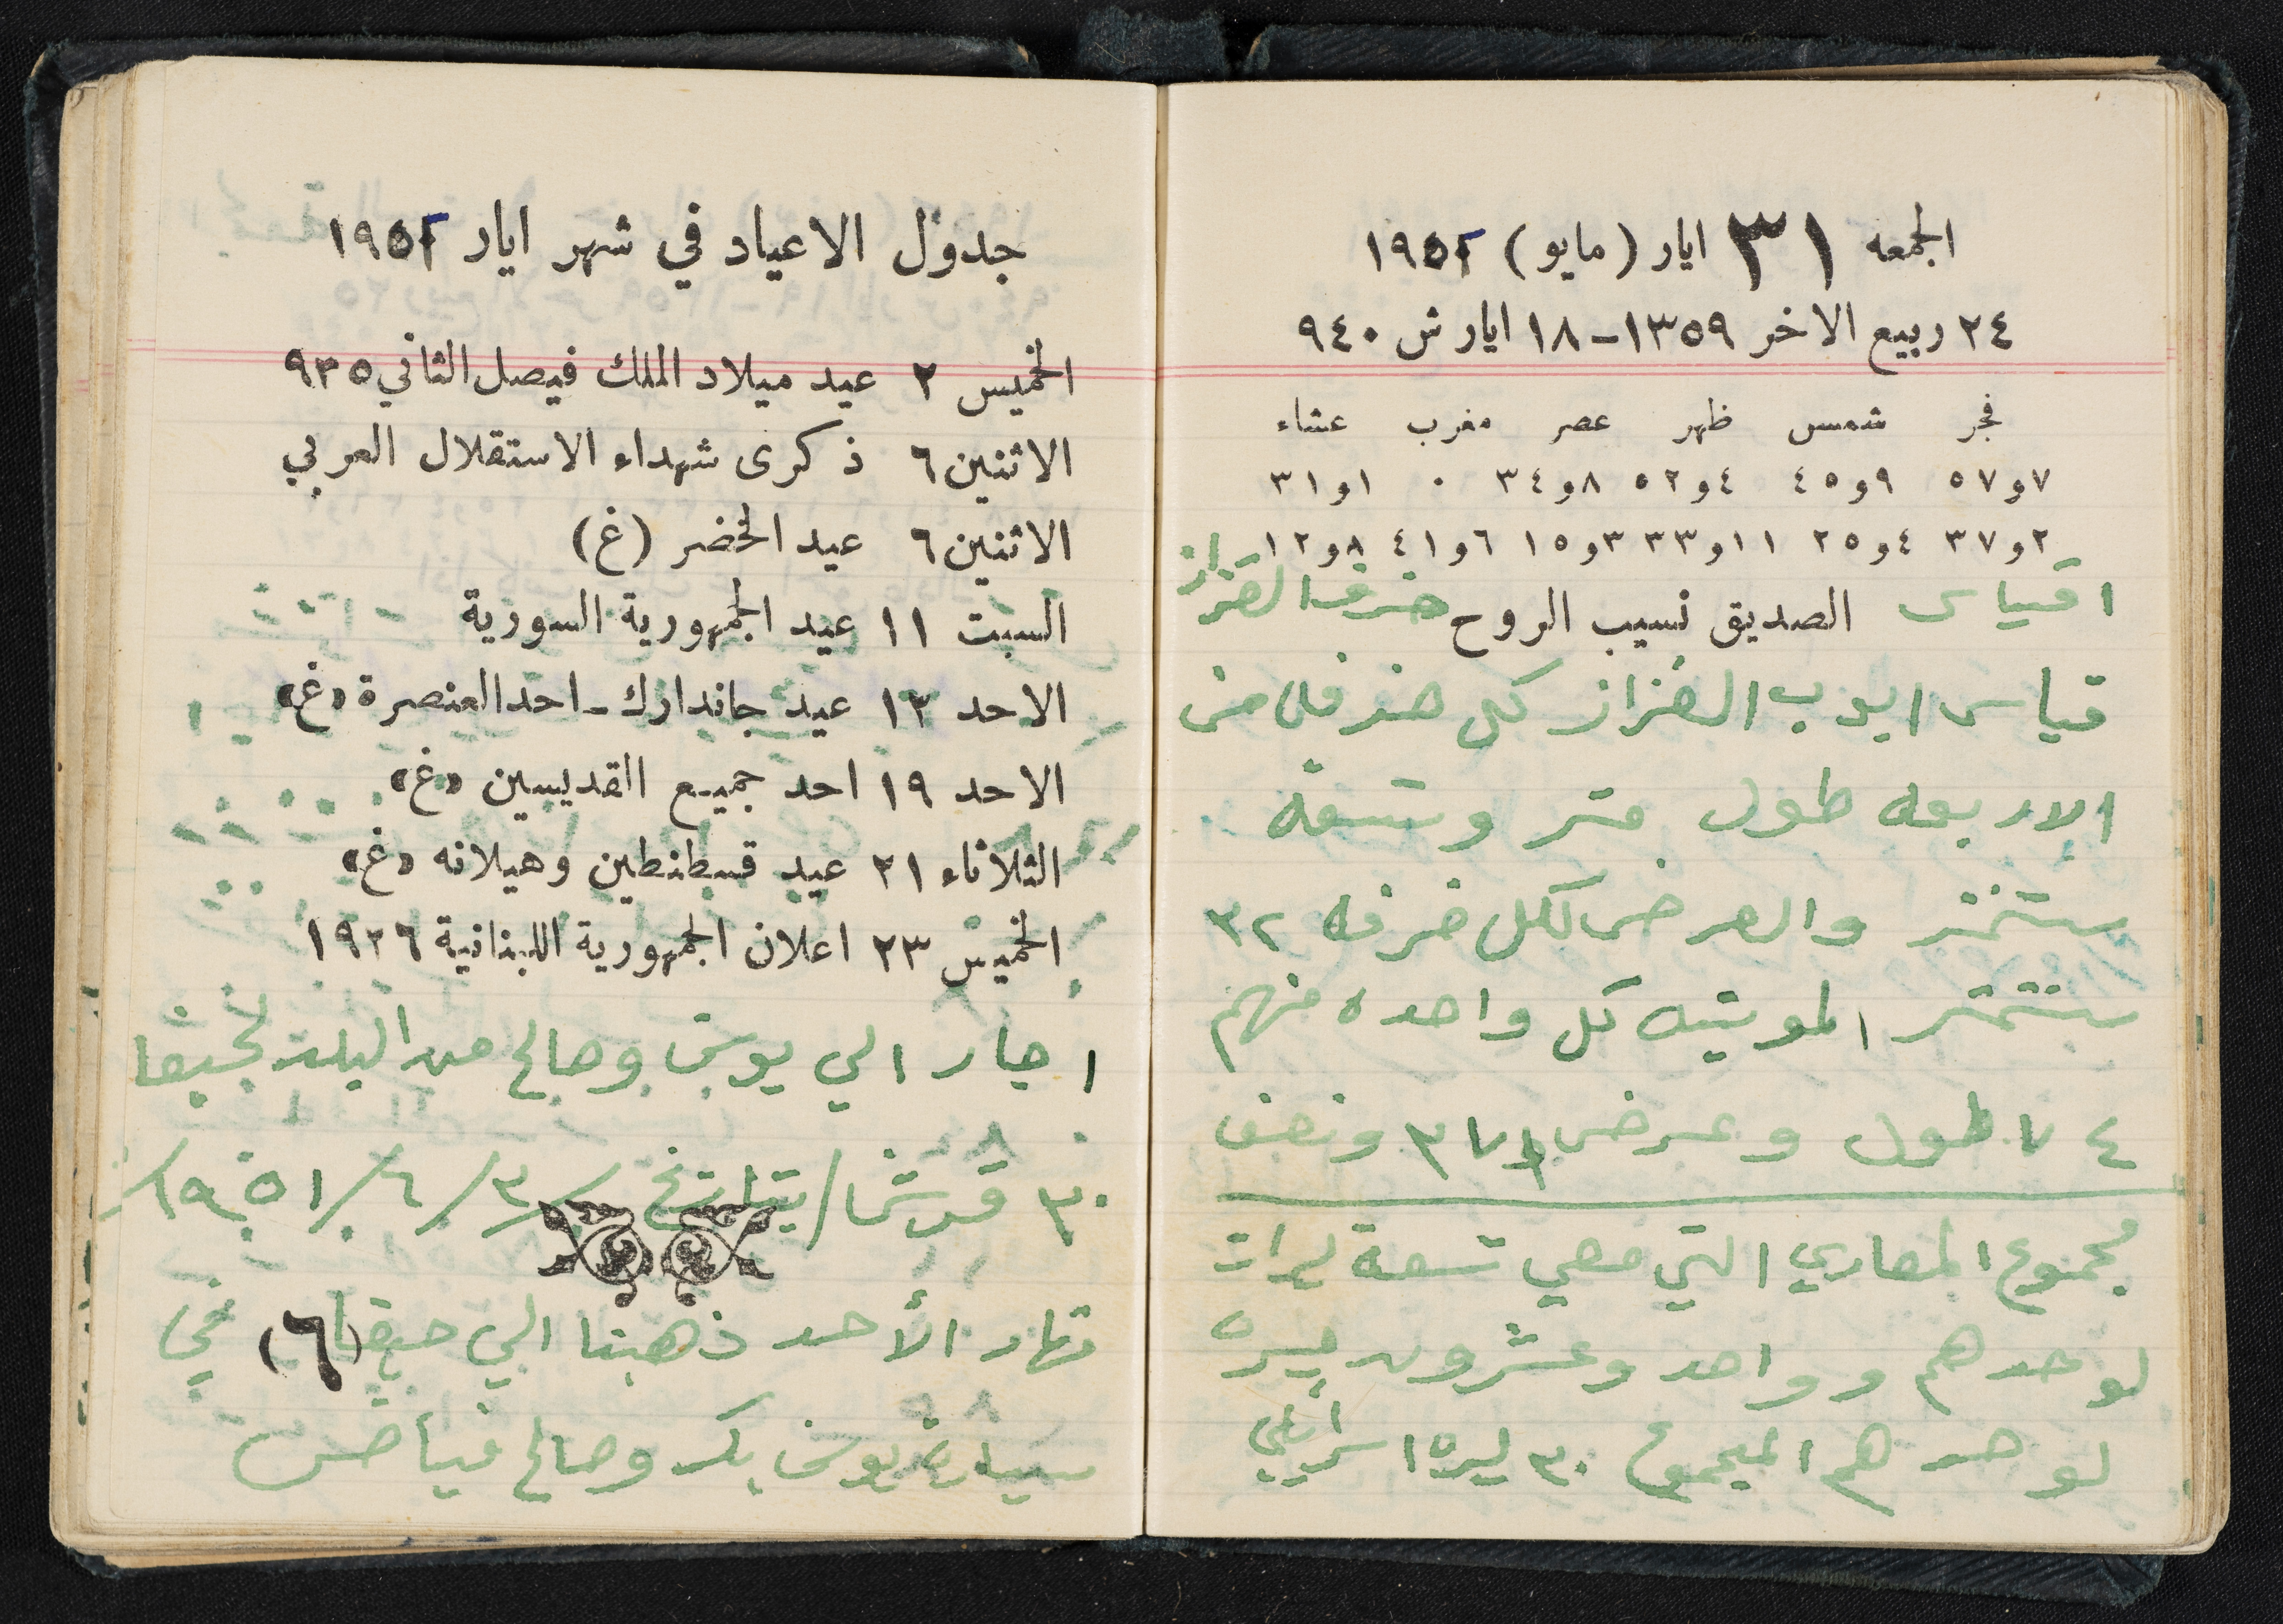 الجمعه ٣١ ايار (مايو) ١٩٥٢
٢٤ ربيع الاخر ١٣٥٩ - ١٨ ايار ش ٩٤٠
فجر شمس ظهر عصر مغرب عشاء
٧و٥٧ ٩و٤٥ ٤و٥٢ ٨و٣٤ ٠ ١و٣١
٢و٣٧ ٤و٢٥ ١١و٣٣ ٣و١٥ ٦و٤١ ٨و١٢
الصديق نسيب الروح
اقياس القزاز
قياس ابوب القزاز كل
الاربعه طول متر وتسعة
والعرض لكل ضرفه ٣٢
كل واحده منهم
٤٧ طول وعرض ونصف
مجموع المصاري التي معي تسعة ليرات
لوحدهم وواحد وعشرون ليره
لوحدهم المجموع ٣٠ ليره اسرائيلي
جدول الاعياد في شهر ايار ١٩٥٢
الخميس ٢ عيد ميلاد الملك فيصل الثاني ٩٣٥
الاثنين ٦ ذكرى شهداء الاستقلال العربي
الاثنين ٦ عيد الخضر (غ)
السبت ١١ عيد الجمهورية السورية
الاحد ١٢ عيد جاندارك - احد العنصرة «غ»
الاحد ١٩ احد جميع القديسين «غ»
الثلاثاء ٢١ عيد قسطنطين وهيلانه «غ»
الخميس ٢٣ اعلان الجمهورية اللبنانية ١٩٢٦
الي وصالح من البلد لحيفا
٣٠ قرشا / بتاريخ ٣/٦/١٩٥١
نهار الأحد ذهبنا الي حيفا في
(٦)
سيارة يوسف بك وصالح فياض